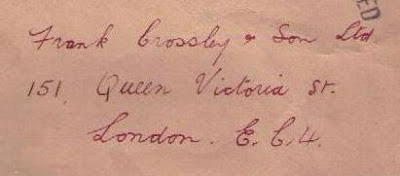 ED
Frank Crossley & Son Ltd
151, Queen Victoria St.
London. E.C.4.